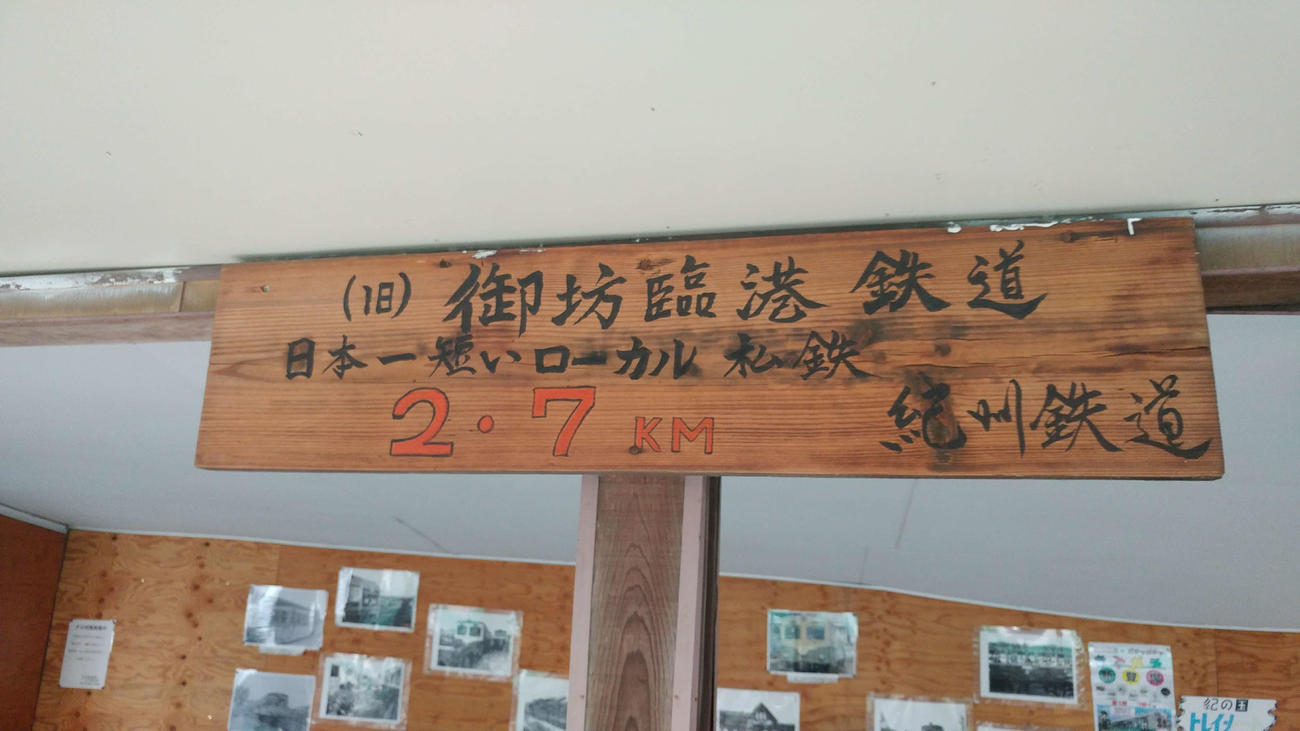 (旧)御坊臨港鉄道
日本一短いローカル私鉄
2・7KM
紀州鉄道
紀の国
トレイン